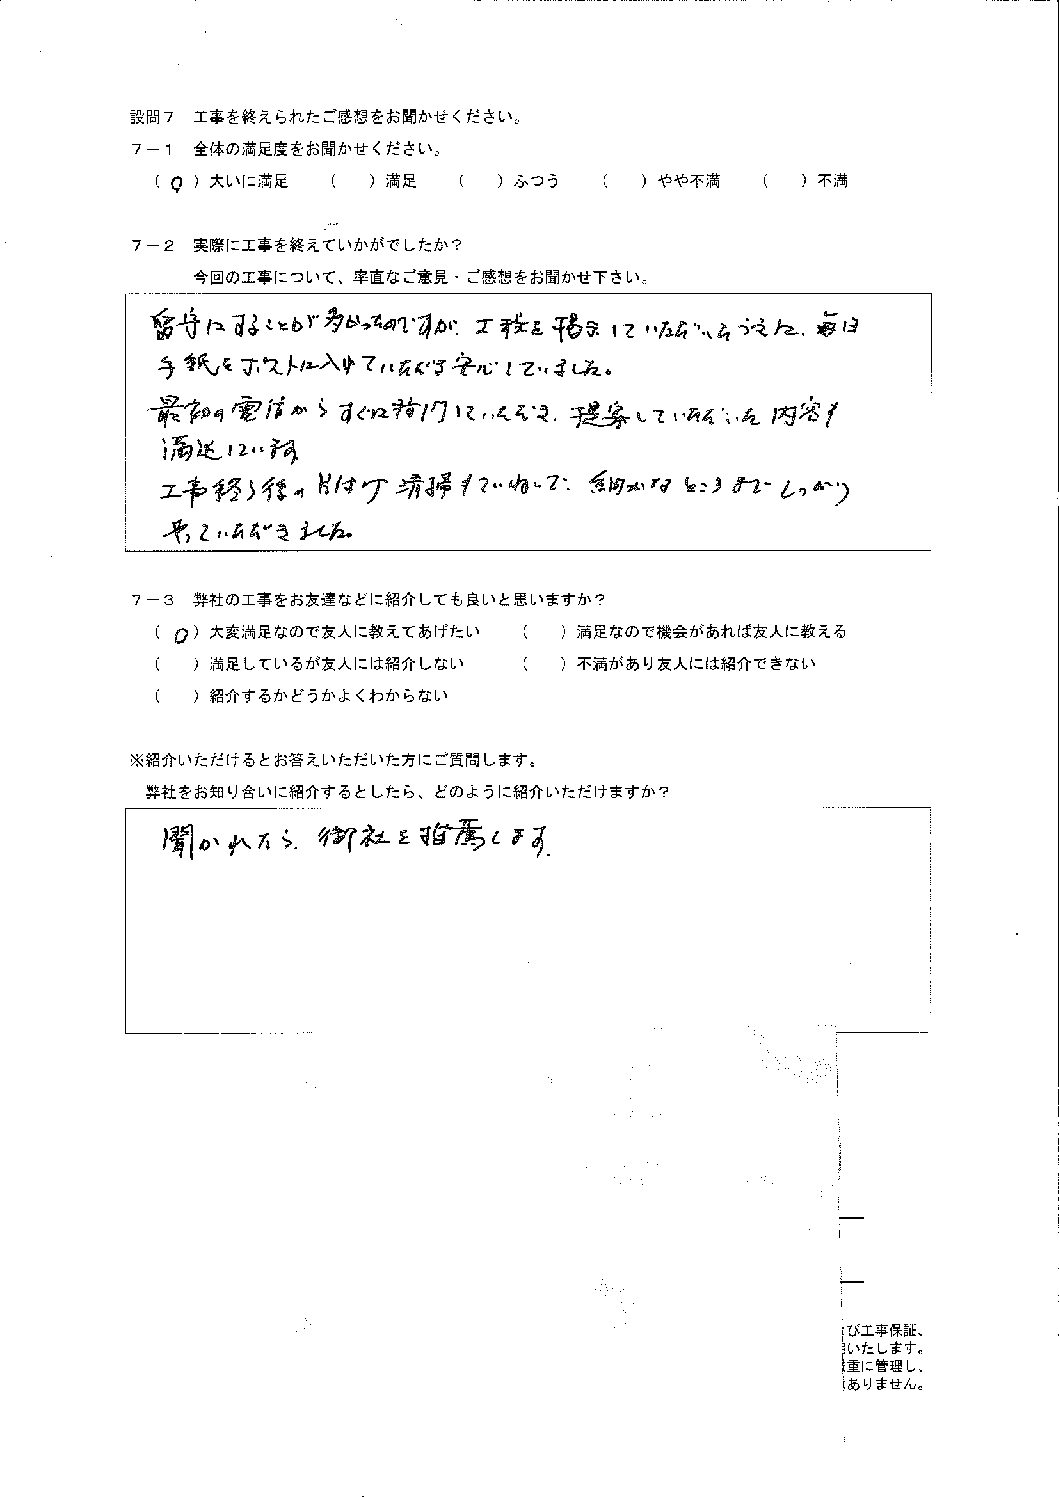 設問7 工事を終えられたご感想をお聞かせください。
7-1 全体の満足度をお聞かせください。
(○)大いに満足 ( )満足 ( )ふつう ( )やや不満 ( )不満
7-2 実際に工事を終えていかがでしたか?
今回の工事について、率直なご意見・ご感想をお聞かせ下さい。
留守にすることが多かったのですが、工程を掲示していただいたうえに、毎日
手紙をポストに入れていただき安心していました。
最初の電話からすぐに訪問していただき、提案していただいた内容も
満足しています。
工事終了後の片付け清掃もていねいで、細かなところまでしっかり
やっていただきました。
7-3 弊社の工事をお友達などに紹介しても良いと思いますか?
(○)大変満足なので友人に教えてあげたい ( )満足なので機会があれば友人に教える
( )満足しているが友人には紹介しない ( )不満があり友人には紹介できない
( )紹介するかどうかよくわからない
※紹介いただけるとお答えいただいた方にご質問します。
弊社をお知り合いに紹介するとしたら、どのように紹介いただけますか?
聞かれたら、御社を推薦します。
び工事保証、
いたします。
重に管理し、
ありません。